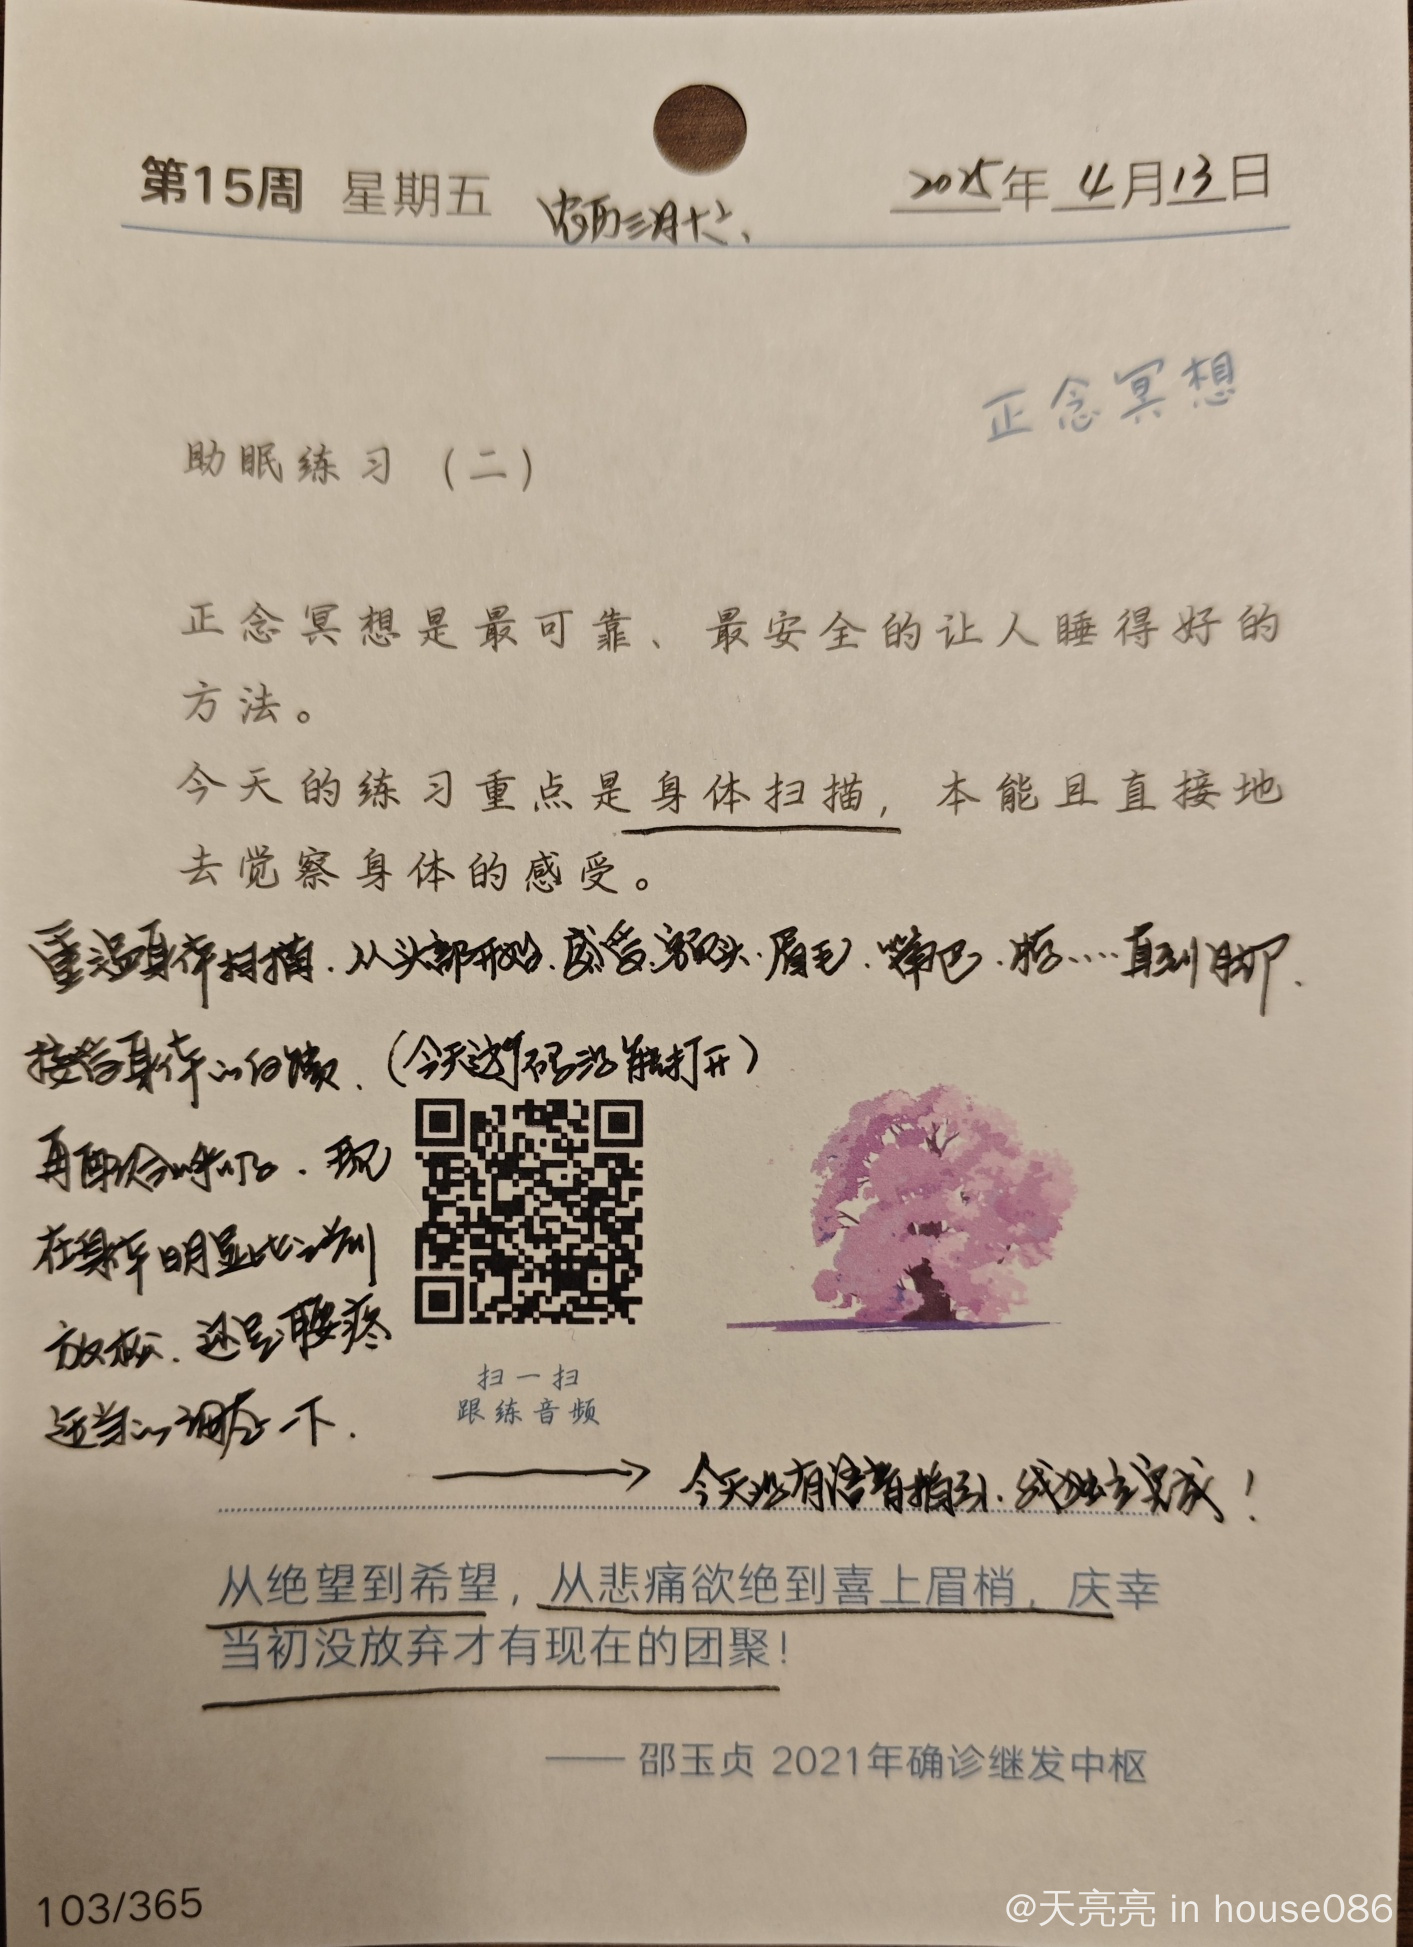 第15周 星期五 农历三月十六、 2025年4月13日
正念冥想
助眠练习（二）
正念冥想是最可靠、最安全的让人睡得好的
方法。
今天的练习重点是身体扫描，本能且直接地
去觉察身体的感受。
重温身体扫描.从头部开始.感受.额头.眉毛.嘴巴.脖……直到脚.
接着身体的后续.（今天这个码没能打开）
再配合呼吸.现
在身体明显比之前
放松.还是腰疼
适当的调859一下.
扫一扫
跟练音频
今天没有语音指引.我独立完成！
从绝望到希望，从悲痛欲绝到喜上眉梢，庆幸
当初没放弃才有现在的团聚！
—— 邵玉贞 2021年确诊继发中枢
103/365
@天亮亮 in house086